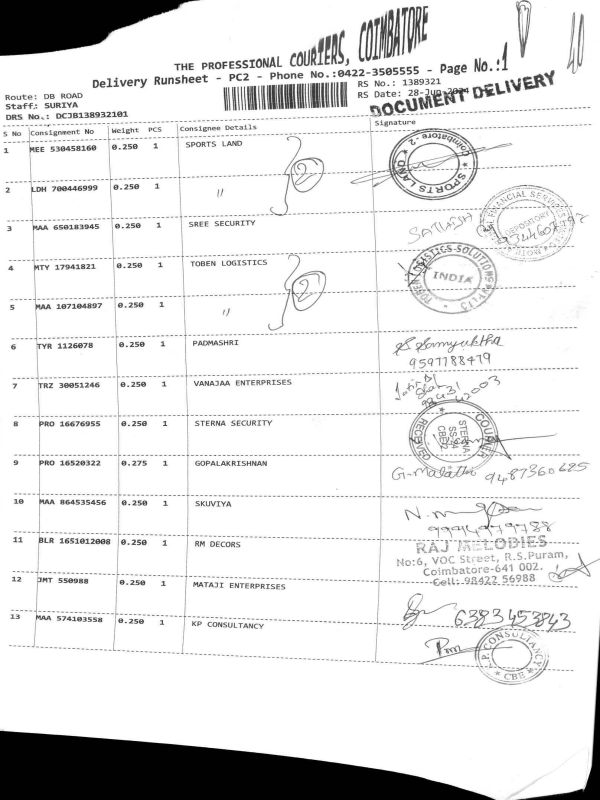 THE PROFESSIONAL COURIERS, COIMBATORE
Delivery Runsheet - PC2 - Phone No.:0422-3505555 - Page No.:1
40
Route: DB ROAD
RS No.: 1389321
Staff: SURIYA
RS Date: 28-Jun-2024
DRS No.: DCJB138932101
DOCUMENT DELIVERY
S No Consignment No Weight PCS Consignee Details Signature
1 MEE 530458160 0.250 1 SPORTS LAND
SPORTS LAND Coimbatore - 2
2 LDH 700446999 0.250 1 "
2
3 MAA 650183945 0.250 1 SREE SECURITY
FINANCIAL SERVICES
DEPOSITORY
4 MTY 17941821 0.250 1 TOBEN LOGISTICS
TOBEN LOGISTICS SOLUTIONS
INDIA
5 MAA 107104897 0.250 1 "
2
6 TYR 1126078 0.250 1 PADMASHRI
S Samyuktha
9597788479
7 TRZ 30051246 0.250 1 VANAJAA ENTERPRISES
8 PRO 16676955 0.250 1 STERNA SECURITY
COURIER
RECEIVED
STERNA
CBE/2
9 PRO 16520322 0.275 1 GOPALAKRISHNAN
G. Malathi 9487360685
10 MAA 864535456 0.250 1 SKUVIYA
9994979788
11 BLR 1651012008 0.250 1 RM DECORS
RAJ MELODIES
No:6, VOC Street, R.S.Puram,
Coimbatore-641 002.
Cell: 98422 56988
12 JMT 550988 0.250 1 MATAJI ENTERPRISES
6383453843
13 MAA 574103558 0.250 1 KP CONSULTANCY
K.P. CONSULTANCY
CBE